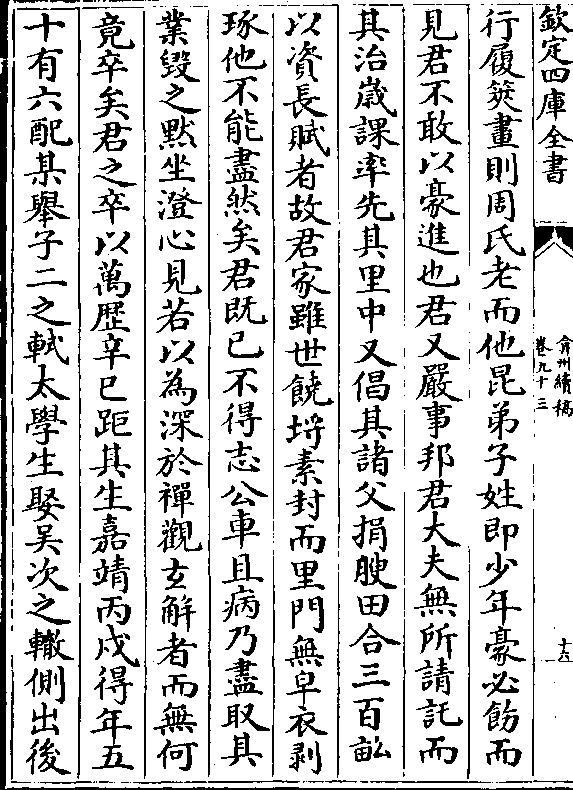 欽定四庫全書
弇州續稿
卷九十三
十六
行履筴畫則周氏老而他昆弟子姓即少年豪必飭而
見君不敢以豪進也君又嚴事邦君大夫無所請託而
其治歳課率先其里中又倡其諸父捐腴田合三百畝
以資長賦者故君家雖世饒埒素封而里門無皁衣剥
琢他不能盡然矣君既已不得志公車且病乃盡取其
業毀之黙坐澄心見若以為深於禪觀玄解者而無何
竟卒矣君之卒以萬歴辛巳距其生嘉靖丙戍得年五
十有六配某舉子二之軾太學生娶吴次之轍側出後